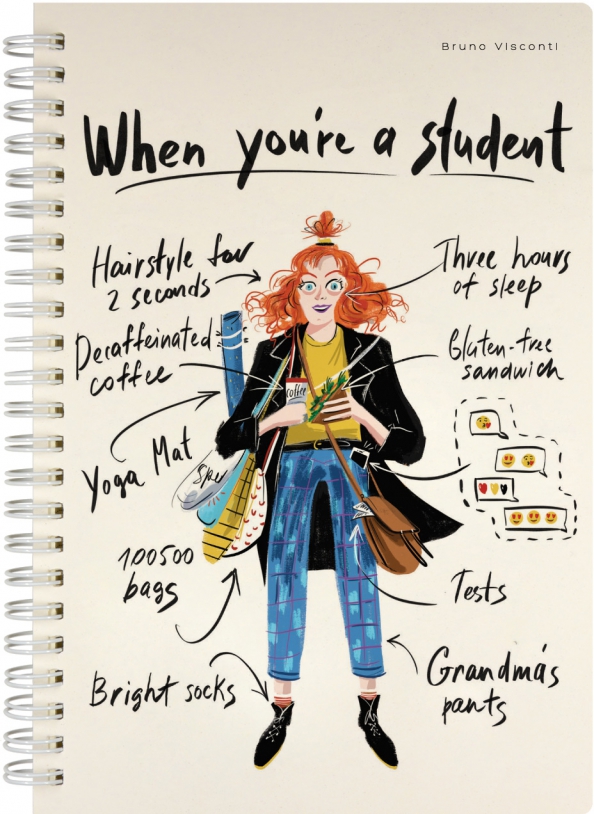 Bruno Visconti
When you're a student
Hairstyle for
2 seconds
Three hours
of sleep
Decaffeinated
coffee
Gluten-free
sandwich
coffee
Yoga Mat
100500
bags
Tests
Bright socks
Grandma's
pants